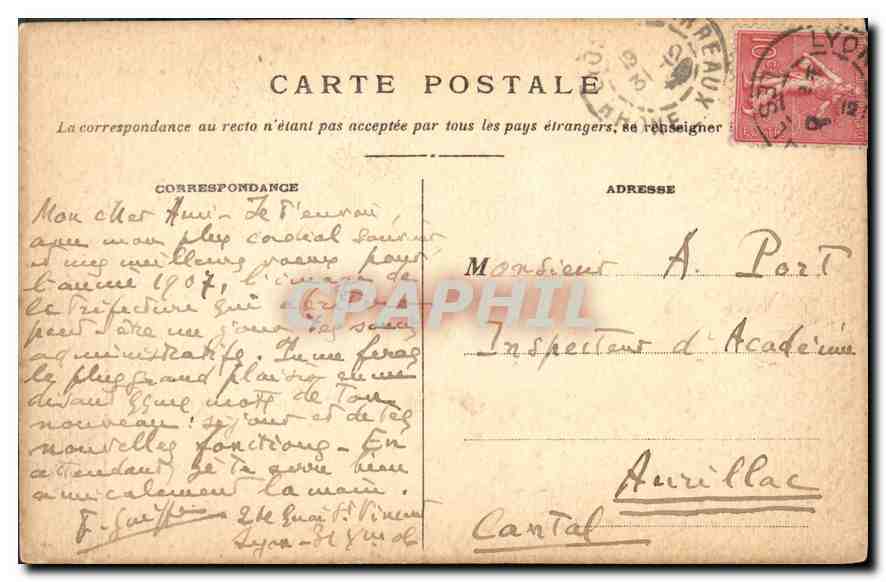 CARTE POSTALE
La correspondance au recto n'étant pas acceptée par tous les pays étrangers, se renseigner
CORRESPONDANCE
Mon cher Ami - Je t'envoie,
avec mon plus cordial souvenir
et mes meilleurs vœux pour
l'année 1907, l'image de
la Préfecture qui
peut-être un jour tes soucis
administratifs. Tu me feras
le plus grand plaisir en me
disant qques mots de ton
nouveau séjour et de tes
nouvelles fonctions - En
attendant, je te serre bien
amicalement la main.
21 Quai St Vincent
Lyon - 31
ADRESSE
Monsieur A. Port
Inspecteur d'Académie
Aurillac
Cantal
RREAUX
RHONE
LYON
10
CPAPHIL